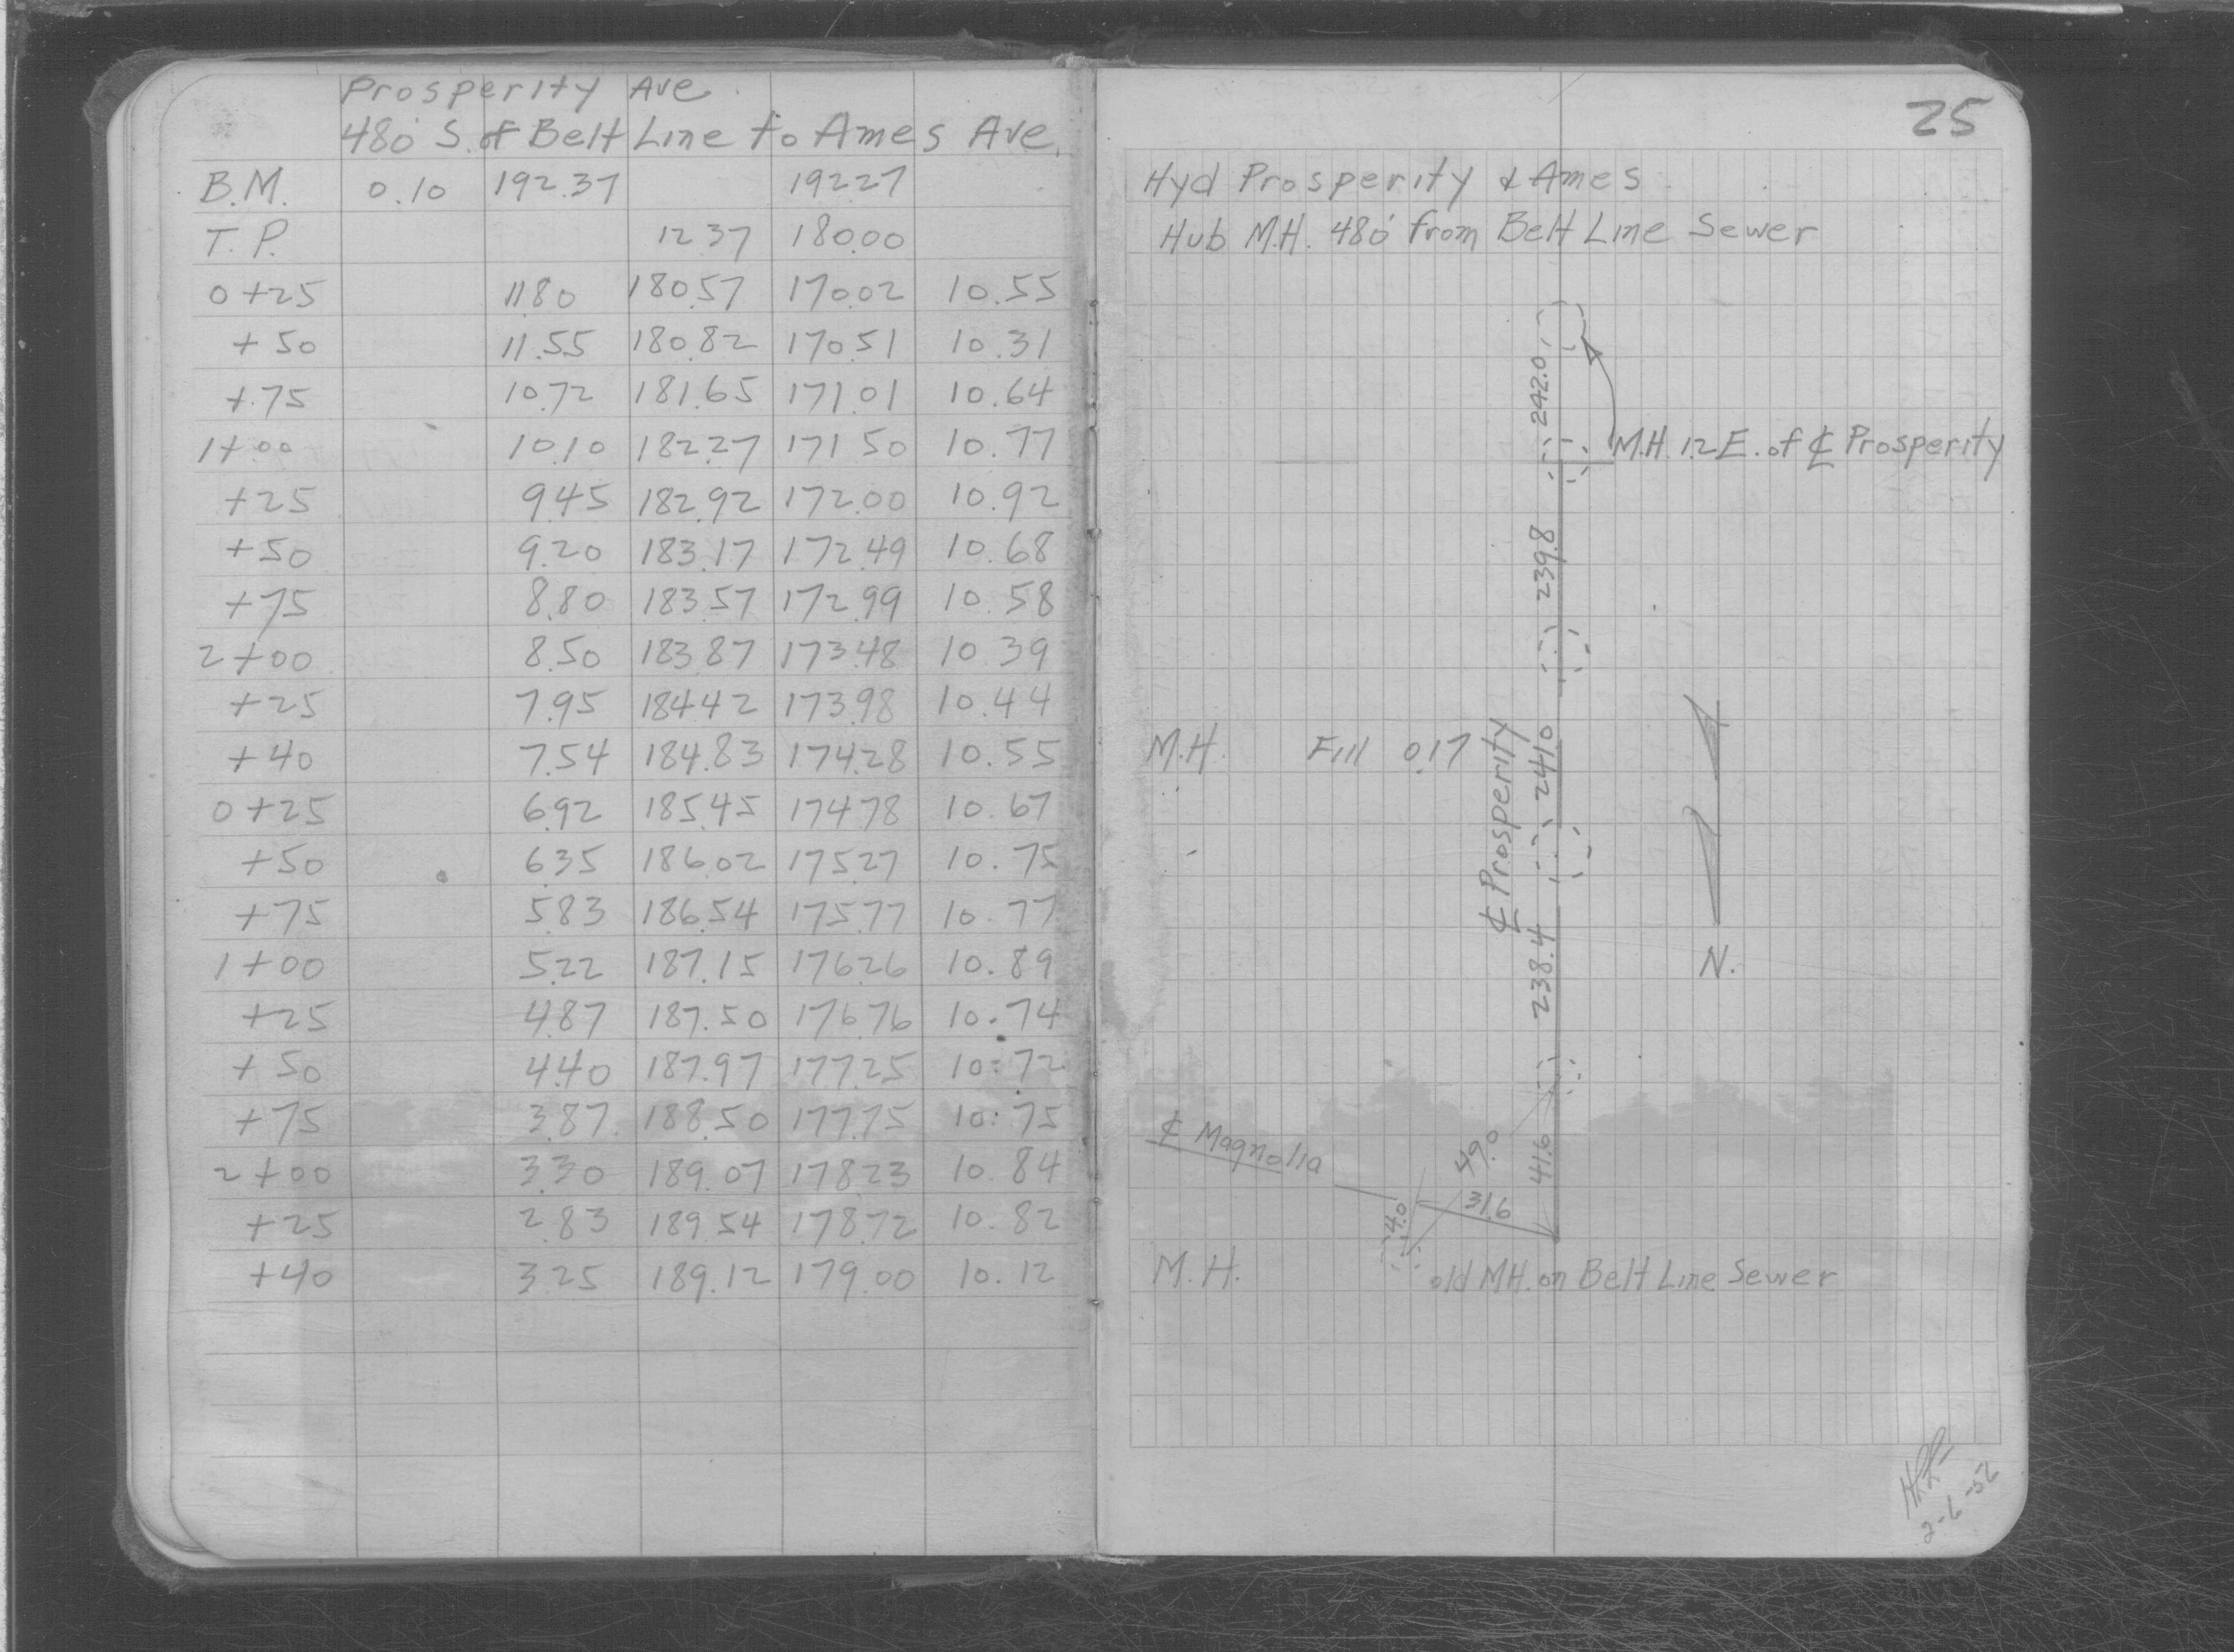 Prosperity Ave.
480' S. of Belt Line to Ames Ave.
B.M. 0.10 192.37 192.27
T.P. 12.37 180.00
0+25 11.80 180.57 170.02 10.55
+50 11.55 180.82 170.51 10.31
+75 10.72 181.65 171.01 10.64
1+00 10.10 182.27 171.50 10.77
+25 9.45 182.92 172.00 10.92
+50 9.20 183.17 172.49 10.68
+75 8.80 183.57 172.99 10.58
2+00 8.50 183.87 173.48 10.39
+25 7.95 184.42 173.98 10.44
+40 7.54 184.83 174.28 10.55
0+25 6.92 185.45 174.78 10.67
+50 6.35 186.02 175.27 10.75
+75 5.83 186.54 175.77 10.77
1+00 5.22 187.15 176.26 10.89
+25 4.87 187.50 176.76 10.74
+50 4.40 187.97 177.25 10.72
+75 3.87 188.50 177.75 10.75
2+00 3.30 189.07 178.23 10.84
+25 2.83 189.54 178.72 10.82
+40 3.25 189.12 179.00 10.12
25
Hyd Prosperity & Ames
Hub M.H. 480' from Belt Line Sewer
242.0
M.H. 1.2 E. of ℄ Prosperity
239.8
M.H. Fill 0.17
℄ Prosperity
241.0
238.4
N.
℄ Magnolia
49.0
41.6
31.6
4.0
M.H. old MH. on Belt Line Sewer
2-6-52